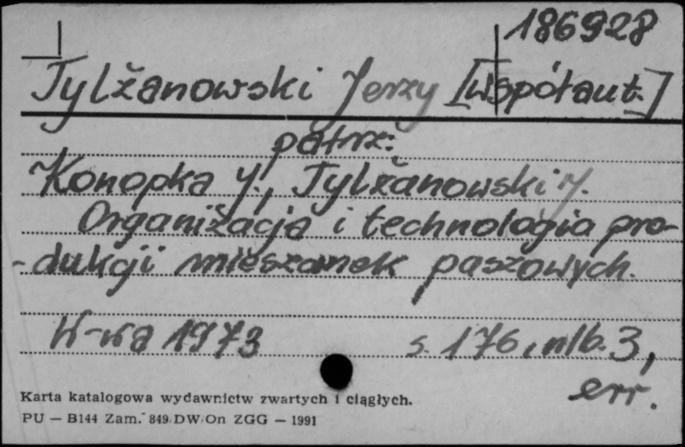 186928
Tylżanowski Jerzy [współaut.]
patrz:
Konopka J., Tylżanowski J.
Organizacja i technologia pro-
-dukcji mieszanek paszowych.
W-wa 1973 s. 176, nlb. 3,
err.
Karta katalogowa wydawnictw zwartych i ciągłych.
PU — B144 Zam. 849 DW/On ZGG — 1991